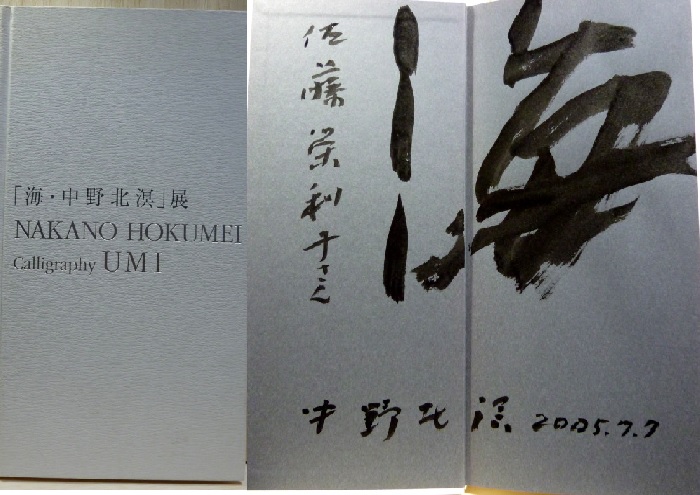 「海・中野北溟」展
NAKANO HOKUMEI
Calligraphy UMI
佐藤栄利子さん
海
中野北溟 2005.7.7